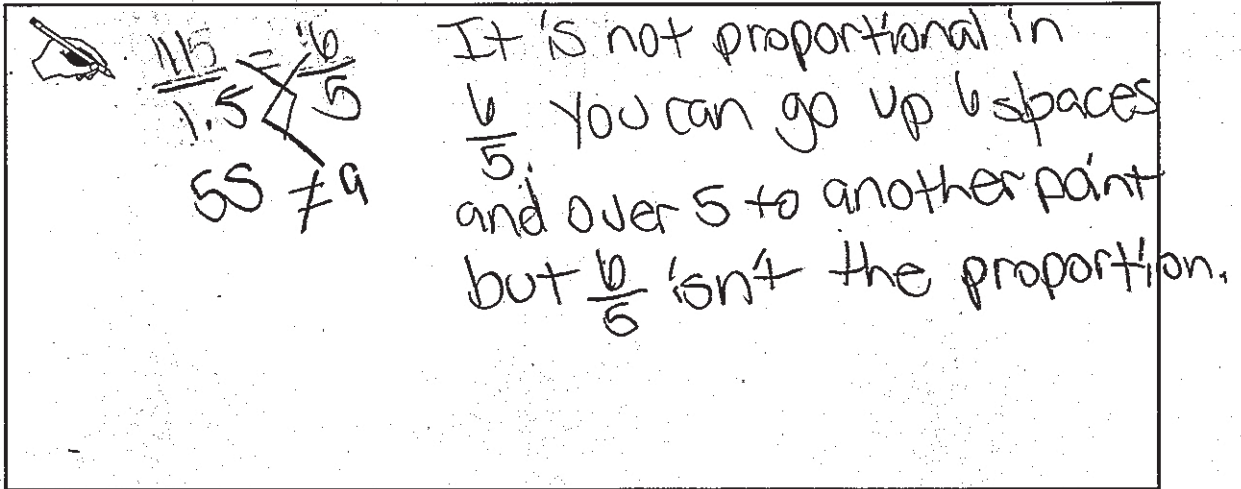 11.5/1.5 = 6/5
55 ≠ 9
It is not proportional in
6/5. You can go up 6 spaces
and over 5 to another point
but 6/5 isn't the proportion.